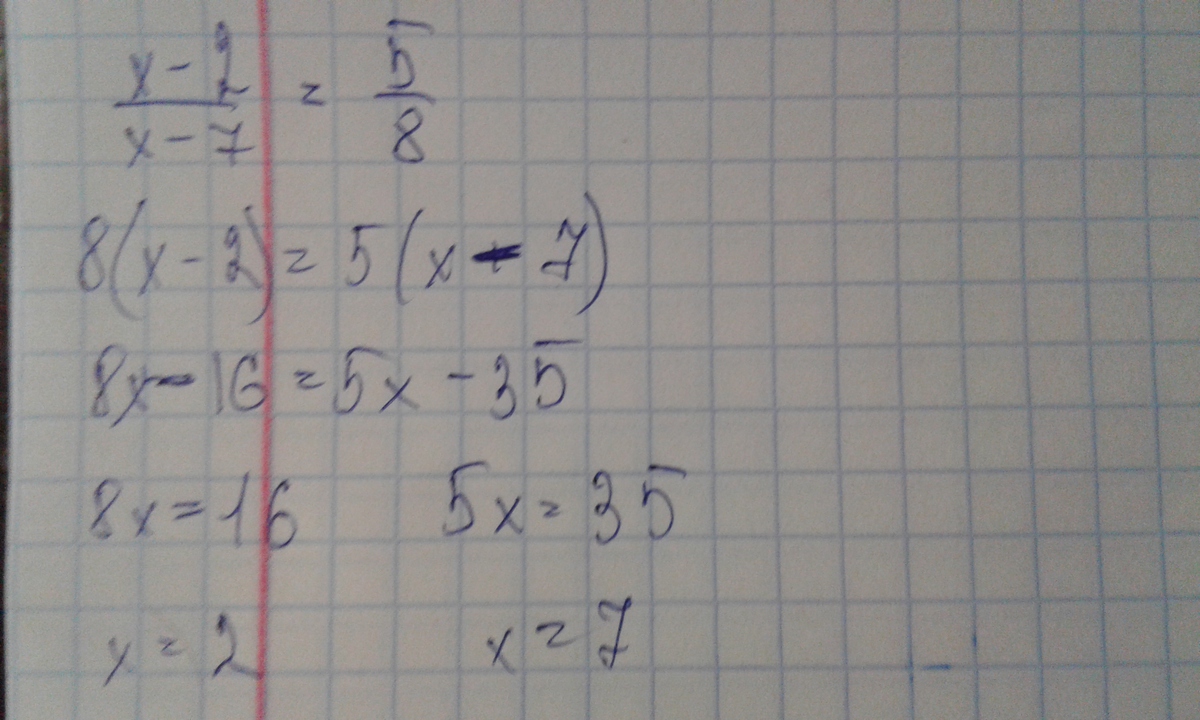 x - 2 / x - 7 = 5 / 8
8(x - 2) = 5(x - 7)
8x - 16 = 5x - 35
8x = 16 5x = 35
x = 2 x = 7